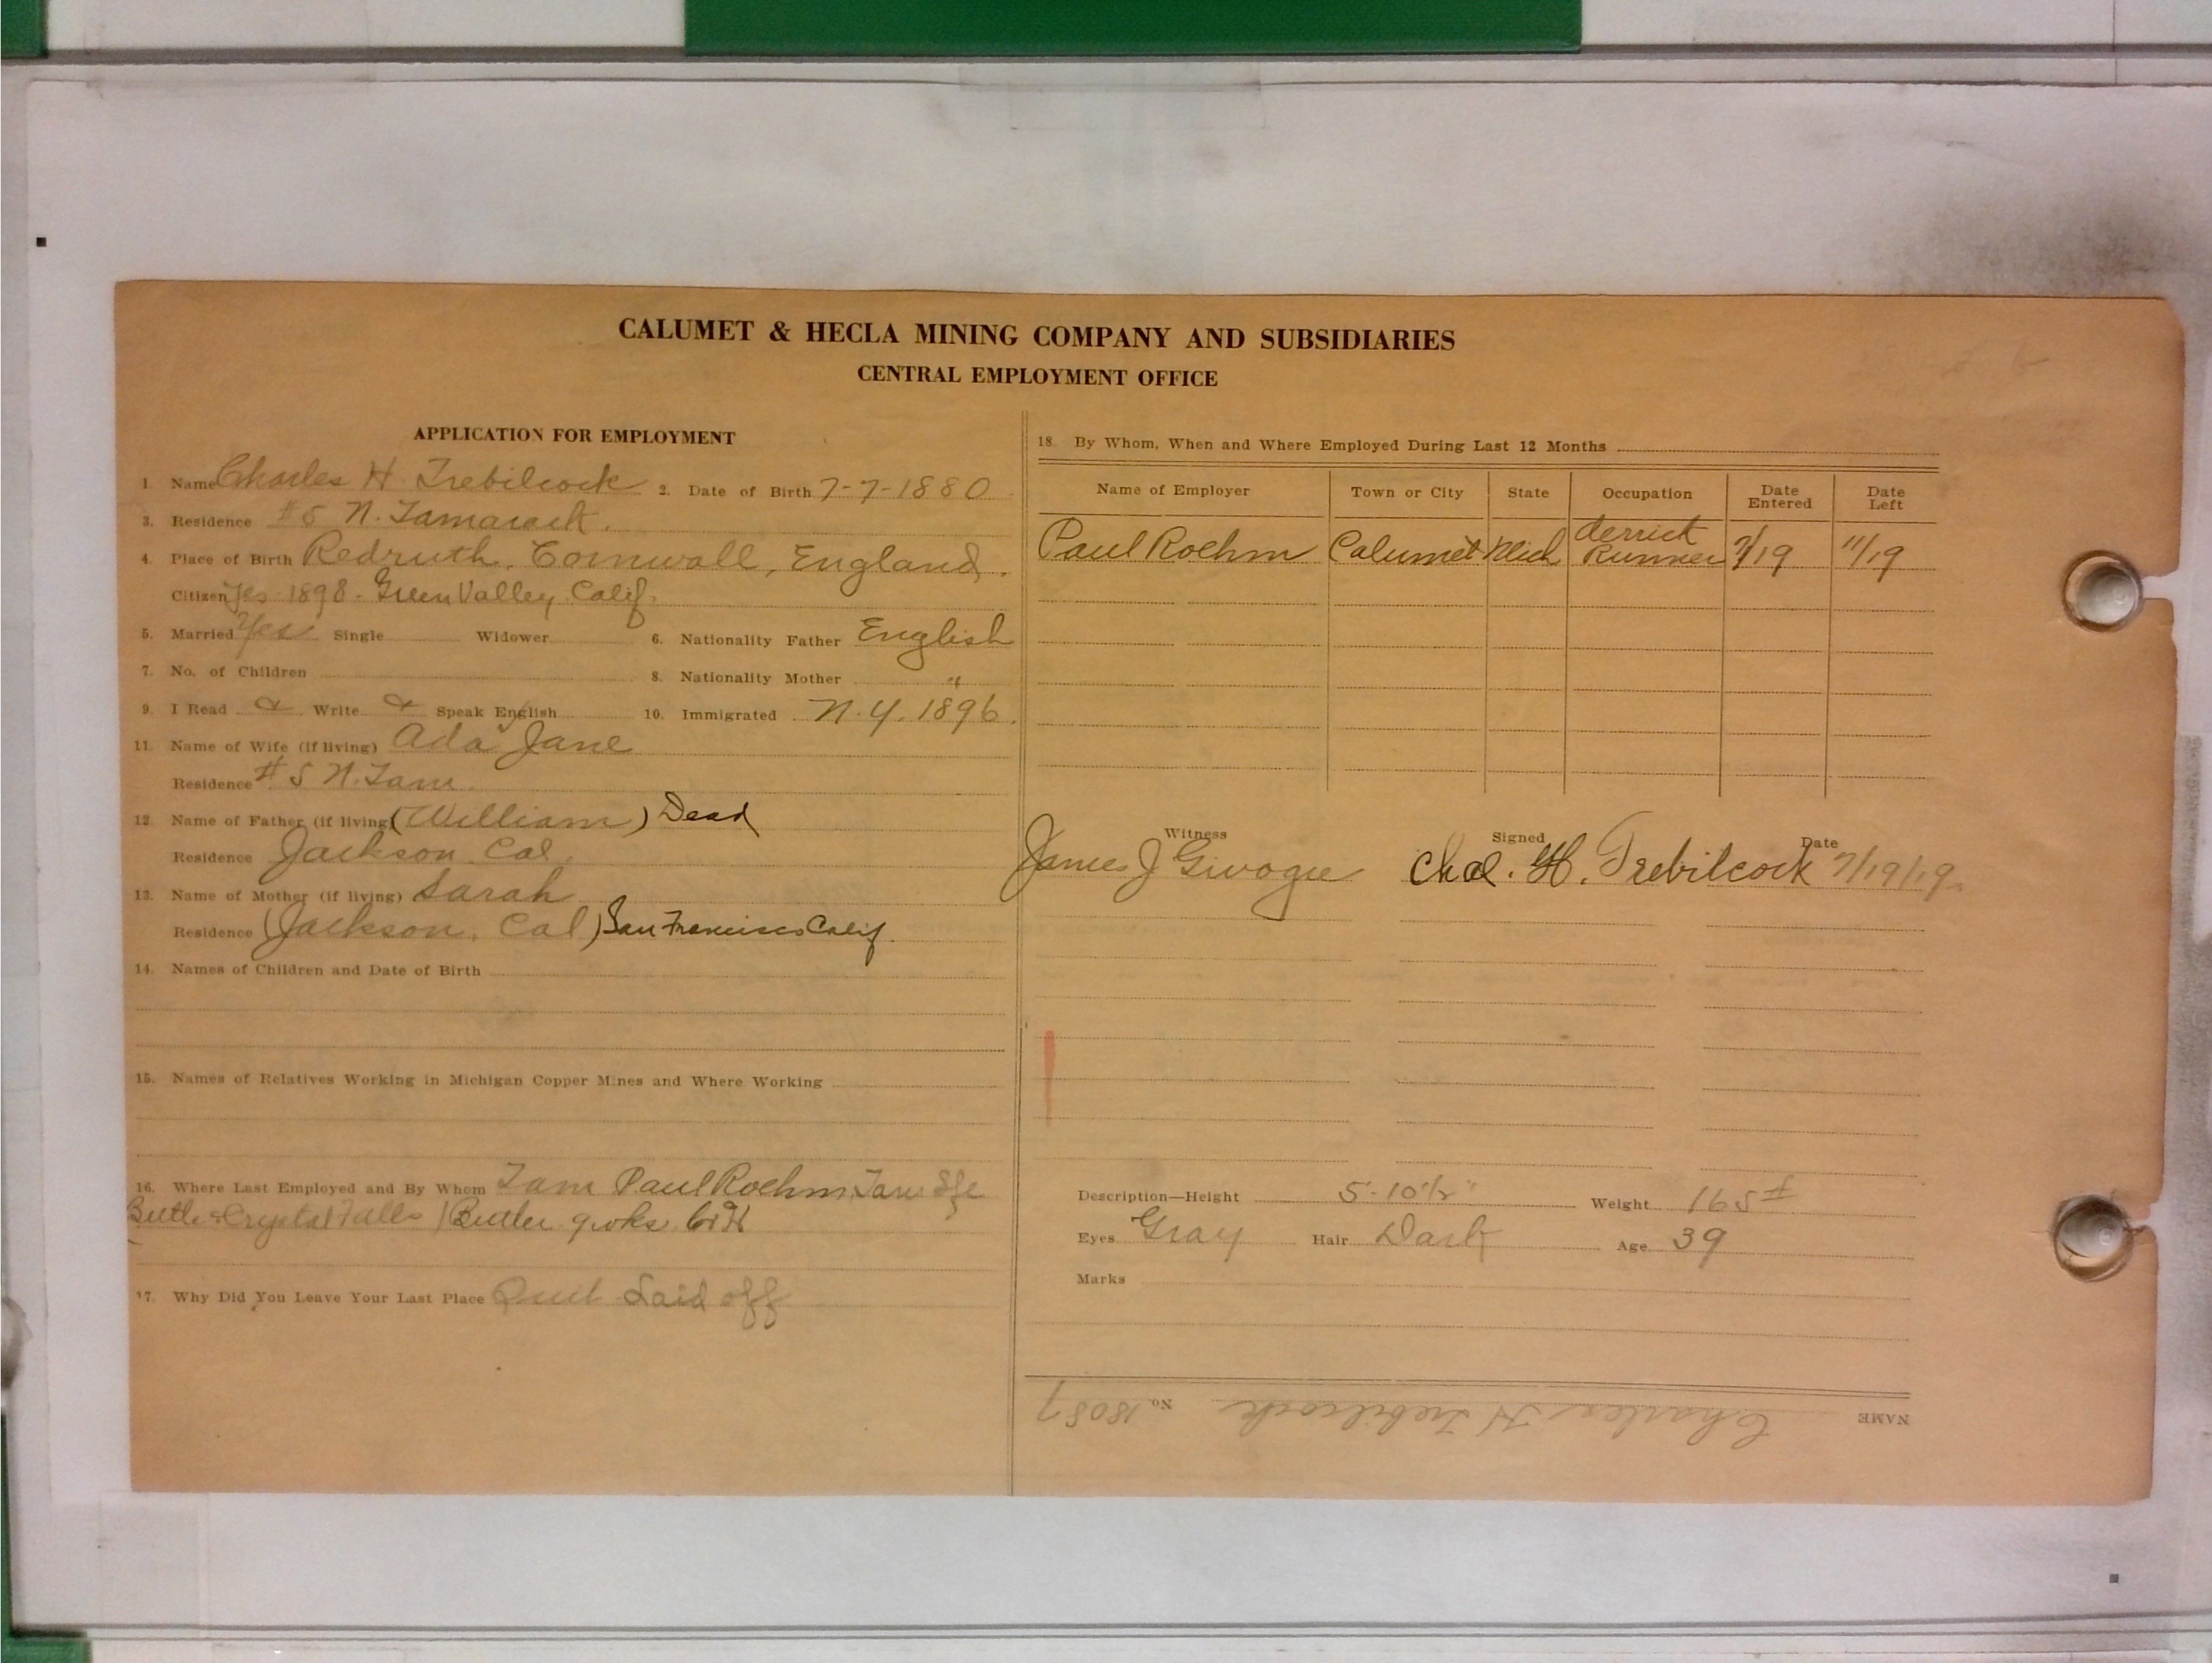 CALUMET & HECLA MINING COMPANY AND SUBSIDIARIES
CENTRAL EMPLOYMENT OFFICE
APPLICATION FOR EMPLOYMENT
1. Name Charles H Trebilcock 2. Date of Birth 7-7-1880
3. Residence #5 N. Tamarack.
4. Place of Birth Redruth, Cornwall, England.
Citizen Yes 1898 - Green Valley Calif.
5. Married Yes Single Widower 6. Nationality Father English
7. No. of Children 8. Nationality Mother "
9. I Read & Write & Speak English 10. Immigrated N.Y. 1896.
11. Name of Wife (if living) Ada Jane
Residence # 5 N. Tam.
12. Name of Father (if living) (William) Dead
Residence Jackson Cal.
13. Name of Mother (if living) Sarah
Residence (Jackson, Cal) San Francisco Calif.
14. Names of Children and Date of Birth
15. Names of Relatives Working in Michigan Copper Mines and Where Working
16. Where Last Employed and By Whom Tam Paul Roehm
Crystal Falls Butler
17. Why Did You Leave Your Last Place Quit Laid off
18. By Whom, When and Where Employed During Last 12 Months
Name of Employer Town or City State Occupation Date Entered Date Left
Paul Roehm Calumet Mich derrick Runner 7/19 11/19
Witness Signed Date
James J Chas. H. Trebilcock 7/19/19.
Description—Height 5'-10½" Weight 165#
Eyes Gray Hair Dark Age 39
Marks
NAME Charles H Trebilcock No. 18087